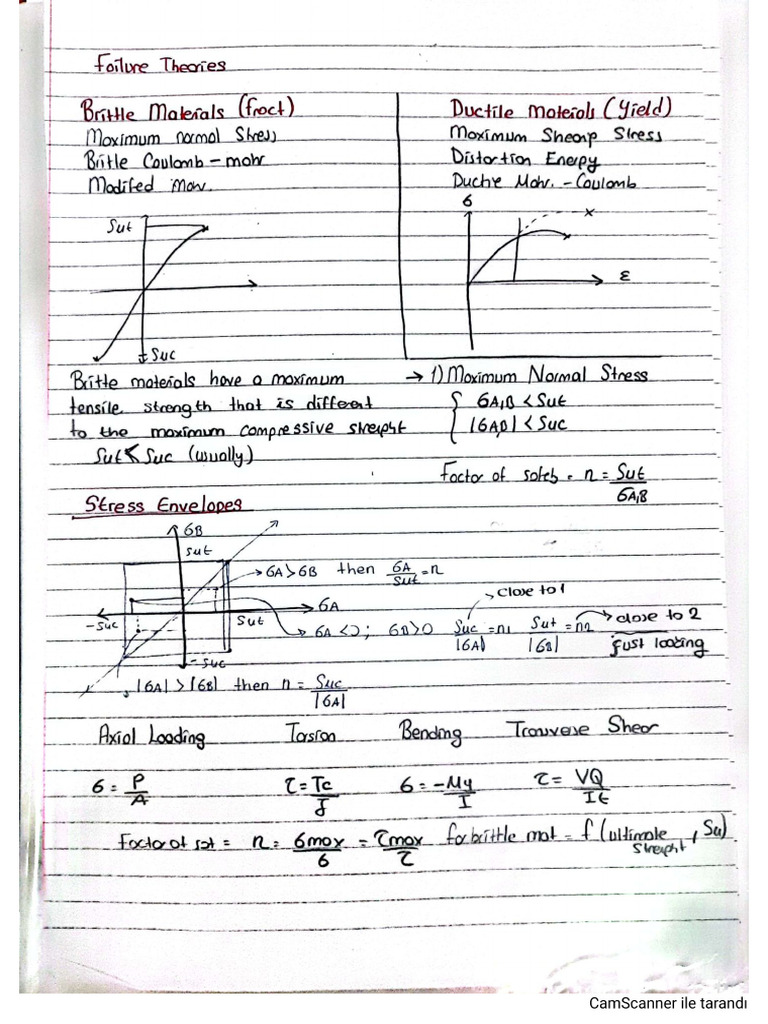 Failure Theories
Brittle Materials (fract)
Maximum normal Stress
Britle Coulomb-mohr
Modifed Mohr.
Sut
Suc
Ductile Materials (Yield)
Maximum Shear Stress
Distortion Energy
Ductile Mohr. - Coulomb
σ
x
ε
Britte materials have a maximum
tensile strength that is different
to the maximum compressive strenght
Sut < Suc (usually)
→ 1) Maximum Normal Stress
σA,B < Sut
|σA,B| < Suc
Factor of = n = Sut / σA,B
Stress Envelopes
σB
Sut
σA > σB then σA/Sut = n
σA
-Suc
Sut
-Suc
σA < 0; σB > 0 Suc/|σA| = n1 Sut/|σB| = n2
close to 1
close to 2
just looking
|σA| > |σB| then n = Suc/|σA|
Axial Loading Torsion Bending Tranverse Shear
σ = P/A τ = Tc/J σ = -My/I τ = VQ/It
Factor of saf = n = σmax/σ = τmax/τ for brittle mat = f (ultimale strenght, Su)
CamScanner ile tarandı